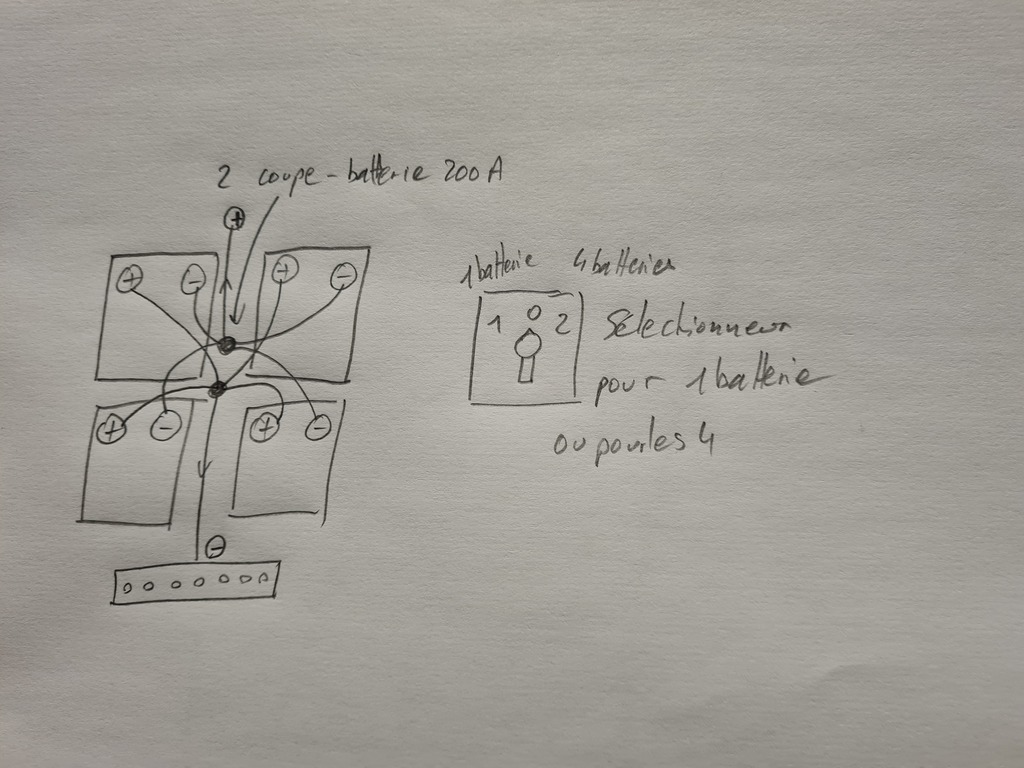 2 coupe-batterie 200A
+
+ - + -
1 batterie 4 batteries
1 0 2
Sélectionneur
pour 1 batterie
ou pour les 4
+ - + -
-